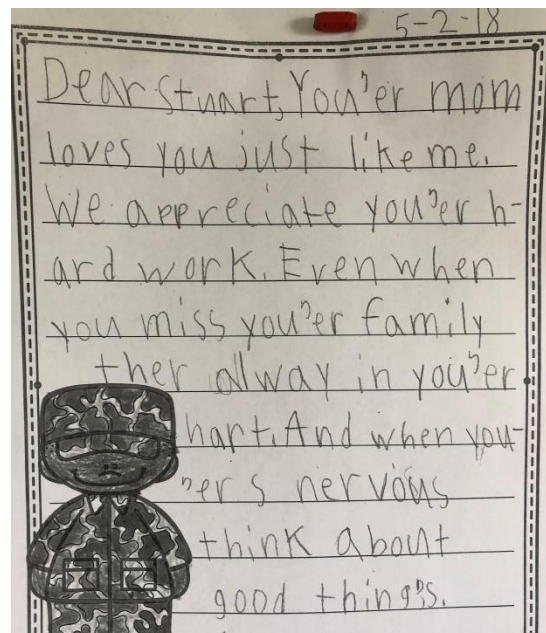 5-2-18
Dear Stuart, You'er mom
loves you just like me.
We appreciate you'er h-
ard work. Even when
you miss you'er family
ther alway in you'er
hart. And when you-
'er s nervous
think about
good things.